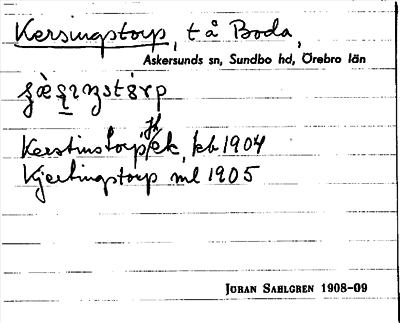 Kersingstorp, t å Boda,
Askersunds sn, Sundbo hd, Örebro län
Kerstinstorp ek, kb 1904
Kjertingstorp ml 1905
JÖRAN SAHLGREN 1908-09